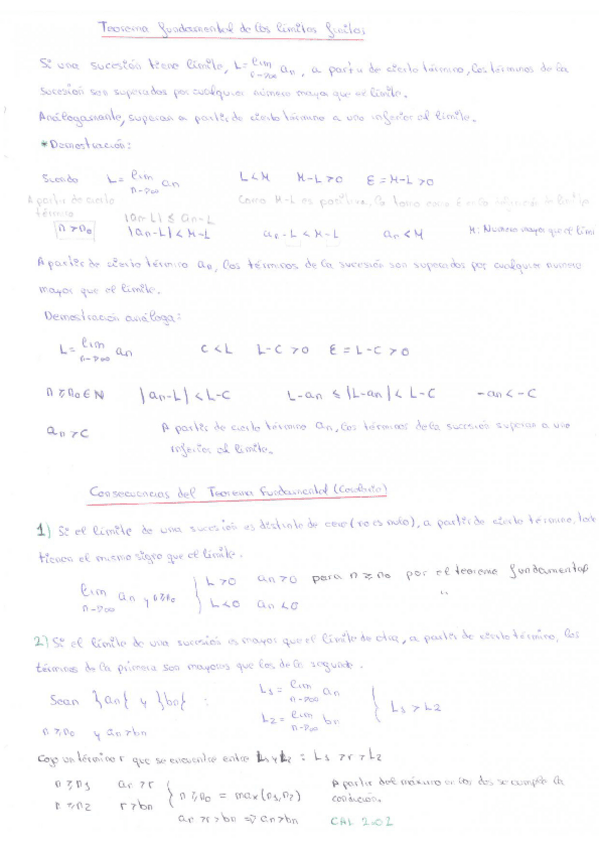 Teorema fundamental de los límites finitos
Si una sucesión tiene límite, L = lim an, a partir de cierto término, los términos de la
n→∞
sucesión son superados por cualquier número mayor que el límite.
Análogamente, superan a partir de cierto término a uno inferior al límite.
* Demostración:
Siendo L = lim an L<M M-L>0 ε = M-L>0
n→∞
A partir de cierto término Como M-L es positivo, lo tomo como
n>n0 |an-L| ≤ an-L
|an-L| < M-L an-L < M-L an<M M: Número mayor que el límite
A partir de cierto término an, los términos de la sucesión son superados por cualquier número
mayor que el límite.
Demostración análoga:
L = lim an C<L L-C>0 ε = L-C>0
n→∞
n≥n0∈N |an-L| < L-C L-an ≤ |L-an| < L-C -an<-C
an>C A partir de cierto término an, los términos de la sucesión superan a uno
inferior al límite.
Consecuencias del Teorema Fundamental (Corolario)
1) Si el límite de una sucesión es distinto de cero (no es nulo), a partir de cierto término,
tienen el mismo signo que el límite.
lim an y n≥n0 { L>0 an>0 para n≥n0 por el teorema fundamental
n→∞ L<0 an<0 "
2) Si el límite de una sucesión es mayor que el límite de otra, a partir de cierto término, los
términos de la primera son mayores que los de la segunda.
Sean }an{ y }bn{ : L1 = lim an
n→∞
L2 = lim bn { L1 > L2
n→∞
n≥n0 y an>bn
Cojo un término r que se encuentre entre L1 y L2 : L1 > r > L2
n≥n1 an>r { n≥n0 = max(n1,n2) A partir del máximo de los dos se cumple la
n≥n2 r>bn condición.
an>r>bn ⇒ an>bn CAL 2002